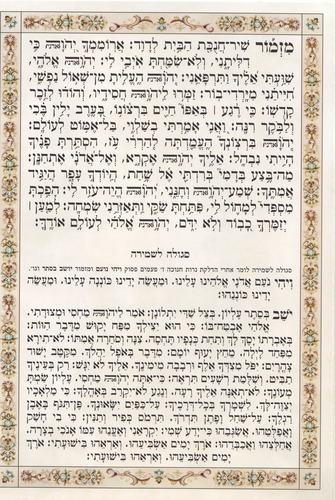 מִזְמוֹר שִׁיר־חֲנֻכַּת הַבַּיִת לְדָוִד: אֲרוֹמִמְךָ יְהֹוָה כִּי
דִלִּיתָנִי, וְלֹא־שִׂמַּחְתָּ אֹיְבַי לִי: יְהֹוָה אֱלֹהָי,
שִׁוַּעְתִּי אֵלֶיךָ וַתִּרְפָּאֵנִי: יְהֹוָה הֶעֱלִיתָ מִן־שְׁאוֹל נַפְשִׁי,
חִיִּיתַנִי מִיָּרְדִי־בוֹר: זַמְּרוּ לַיהֹוָה חֲסִידָיו, וְהוֹדוּ לְזֵכֶר
קָדְשׁוֹ: כִּי רֶגַע בְּאַפּוֹ חַיִּים בִּרְצוֹנוֹ, בָּעֶרֶב יָלִין בֶּכִי
וְלַבֹּקֶר רִנָּה: וַאֲנִי אָמַרְתִּי בְשַׁלְוִי, בַּל־אֶמּוֹט לְעוֹלָם:
יְהֹוָה בִּרְצוֹנְךָ הֶעֱמַדְתָּה לְהַרְרִי עֹז, הִסְתַּרְתָּ פָנֶיךָ
הָיִיתִי נִבְהָל: אֵלֶיךָ יְהֹוָה אֶקְרָא, וְאֶל־אֲדֹנָי אֶתְחַנָּן:
מַה־בֶּצַע בְּדָמִי בְּרִדְתִּי אֶל שָׁחַת, הֲיוֹדְךָ עָפָר הֲיַגִּיד
אֲמִתֶּךָ: שְׁמַע־יְהֹוָה וְחָנֵּנִי, יְהֹוָה הֱיֵה־עֹזֵר לִי: הָפַכְתָּ
מִסְפְּדִי לְמָחוֹל לִי, פִּתַּחְתָּ שַׂקִּי וַתְּאַזְּרֵנִי שִׂמְחָה: לְמַעַן
יְזַמֶּרְךָ כָבוֹד וְלֹא יִדֹּם, יְהֹוָה אֱלֹהַי לְעוֹלָם אוֹדֶךָּ:
סגולה לשמירה
סגולה לשמירה לומר אחרי הדלקת נרות חנוכה ז' פעמים פסוק ויהי נועם ומזמור יושב בסתר וגו'.
וִיהִי נֹעַם אֲדֹנָי אֱלֹהֵינוּ עָלֵינוּ, וּמַעֲשֵׂה יָדֵינוּ כּוֹנְנָה עָלֵינוּ, וּמַעֲשֵׂה
יָדֵינוּ כּוֹנְנֵהוּ:
יֹשֵׁב בְּסֵתֶר עֶלְיוֹן, בְּצֵל שַׁדַּי יִתְלוֹנָן: אֹמַר לַיהֹוָה מַחְסִי וּמְצוּדָתִי,
אֱלֹהַי אֶבְטַח־בּוֹ: כִּי הוּא יַצִּילְךָ מִפַּח יָקוּשׁ מִדֶּבֶר הַוּוֹת:
בְּאֶבְרָתוֹ יָסֶךְ לָךְ וְתַחַת כְּנָפָיו תֶּחְסֶה, צִנָּה וְסֹחֵרָה אֲמִתּוֹ: לֹא־תִירָא
מִפַּחַד לָיְלָה, מֵחֵץ יָעוּף יוֹמָם: מִדֶּבֶר בָּאֹפֶל יַהֲלֹךְ, מִקֶּטֶב יָשׁוּד
צָהֳרָיִם: יִפֹּל מִצִּדְּךָ אֶלֶף וּרְבָבָה מִימִינֶךָ, אֵלֶיךָ לֹא יִגָּשׁ: רַק בְּעֵינֶיךָ
תַבִּיט, וְשִׁלֻּמַת רְשָׁעִים תִּרְאֶה: כִּי־אַתָּה יְהֹוָה מַחְסִי, עֶלְיוֹן שַׂמְתָּ
מְעוֹנֶךָ: לֹא־תְאֻנֶּה אֵלֶיךָ רָעָה, וְנֶגַע לֹא־יִקְרַב בְּאָהֳלֶךָ: כִּי מַלְאָכָיו
יְצַוֶּה־לָּךְ, לִשְׁמָרְךָ בְּכָל־דְּרָכֶיךָ: עַל־כַּפַּיִם יִשָּׂאוּנְךָ, פֶּן־תִּגֹּף בָּאֶבֶן
רַגְלֶךָ: עַל־שַׁחַל וָפֶתֶן תִּדְרֹךְ, תִּרְמֹס כְּפִיר וְתַנִּין: כִּי בִי חָשַׁק
וַאֲפַלְּטֵהוּ, אֲשַׂגְּבֵהוּ כִּי־יָדַע שְׁמִי: יִקְרָאֵנִי וְאֶעֱנֵהוּ עִמּוֹ אָנֹכִי בְצָרָה,
אֲחַלְּצֵהוּ וַאֲכַבְּדֵהוּ: אֹרֶךְ יָמִים אַשְׂבִּיעֵהוּ, וְאַרְאֵהוּ בִּישׁוּעָתִי: אֹרֶךְ
יָמִים אַשְׂבִּיעֵהוּ, וְאַרְאֵהוּ בִּישׁוּעָתִי: